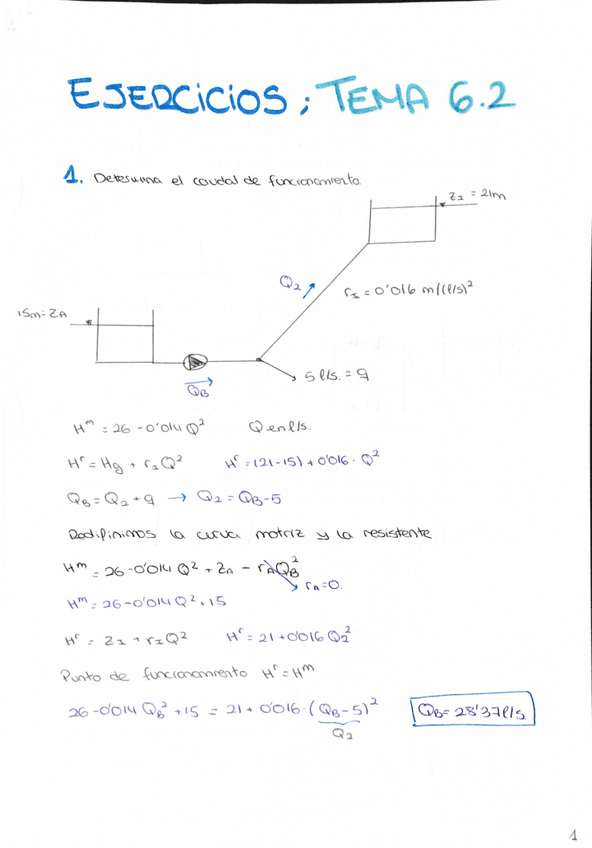 EJERCICIOS; TEMA 6.2
1. Determina el caudal de funcionamiento.
ZI = 21m
Q2
rI = 0'016 m/(l/s)²
15m = ZA
5 l/s. = q
QB
Hᵐ = 26 - 0'014 Q² Q en l/s.
Hʳ = Hg + rIQ² Hʳ = (21-15) + 0'016 · Q²
QB = Q2 + q → Q2 = QB - 5
Redifinimos la curva motriz y la resistente
Hᵐ = 26 - 0'014 Q² + ZA - rAQB²
rA = 0.
Hᵐ = 26 - 0'014 Q² + 15
Hʳ = ZI + rIQ² Hʳ = 21 + 0'016 Q2²
Punto de funcionamiento Hʳ = Hᵐ
26 - 0'014 QB² + 15 = 21 + 0'016 · (QB - 5)² QB = 28'37 l/s
Q2
1